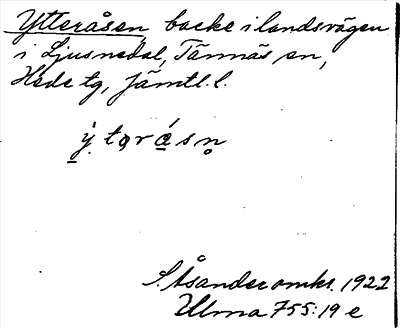 Ytteråsen, backe i landsvägen
i Ljusnedal, Tännäs sn,
Hede tg, Jämtl. l.
ỳtərásn̥
S. Åsander omkr. 1922
Ulma 755:19 e